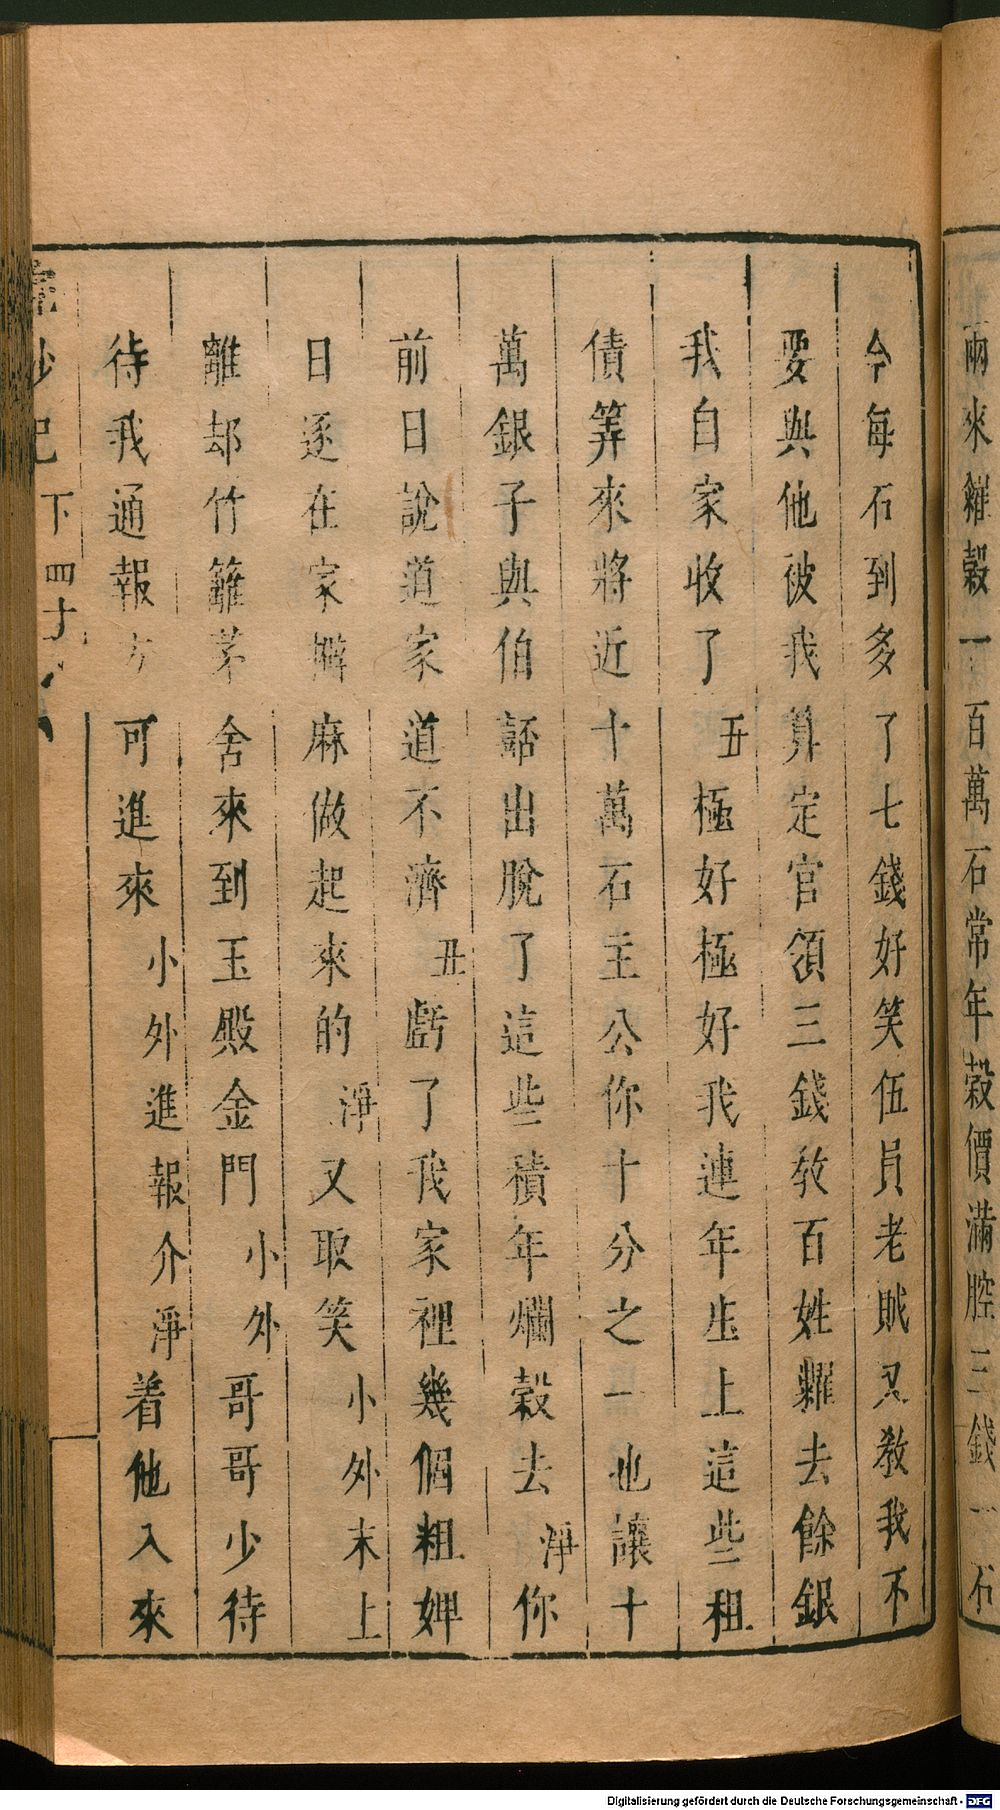 兩來糴穀一百萬石常年穀價滿腔三錢一石
今每石到多了七錢好笑伍員老賊又教我不
要與他被我算定官領三錢教百姓糶去餘銀
我自家收了丑極好極好我連年生上這些租
債筭來將近十萬石主公你十分之一也讓十
萬銀子與伯嚭出脫了這些積年爛穀去淨你
前日說道家道不濟丑虧了我家裡幾個粗婢
日逐在家績麻做起來的淨又取笑小外末上
離却竹籬茅舍來到玉殿金門小外哥哥少待
待我通報方可進來小外進報介淨着他入來
紗記 下 四十
Digitalisierung gefördert durch die Deutsche Forschungsgemeinschaft - DFG